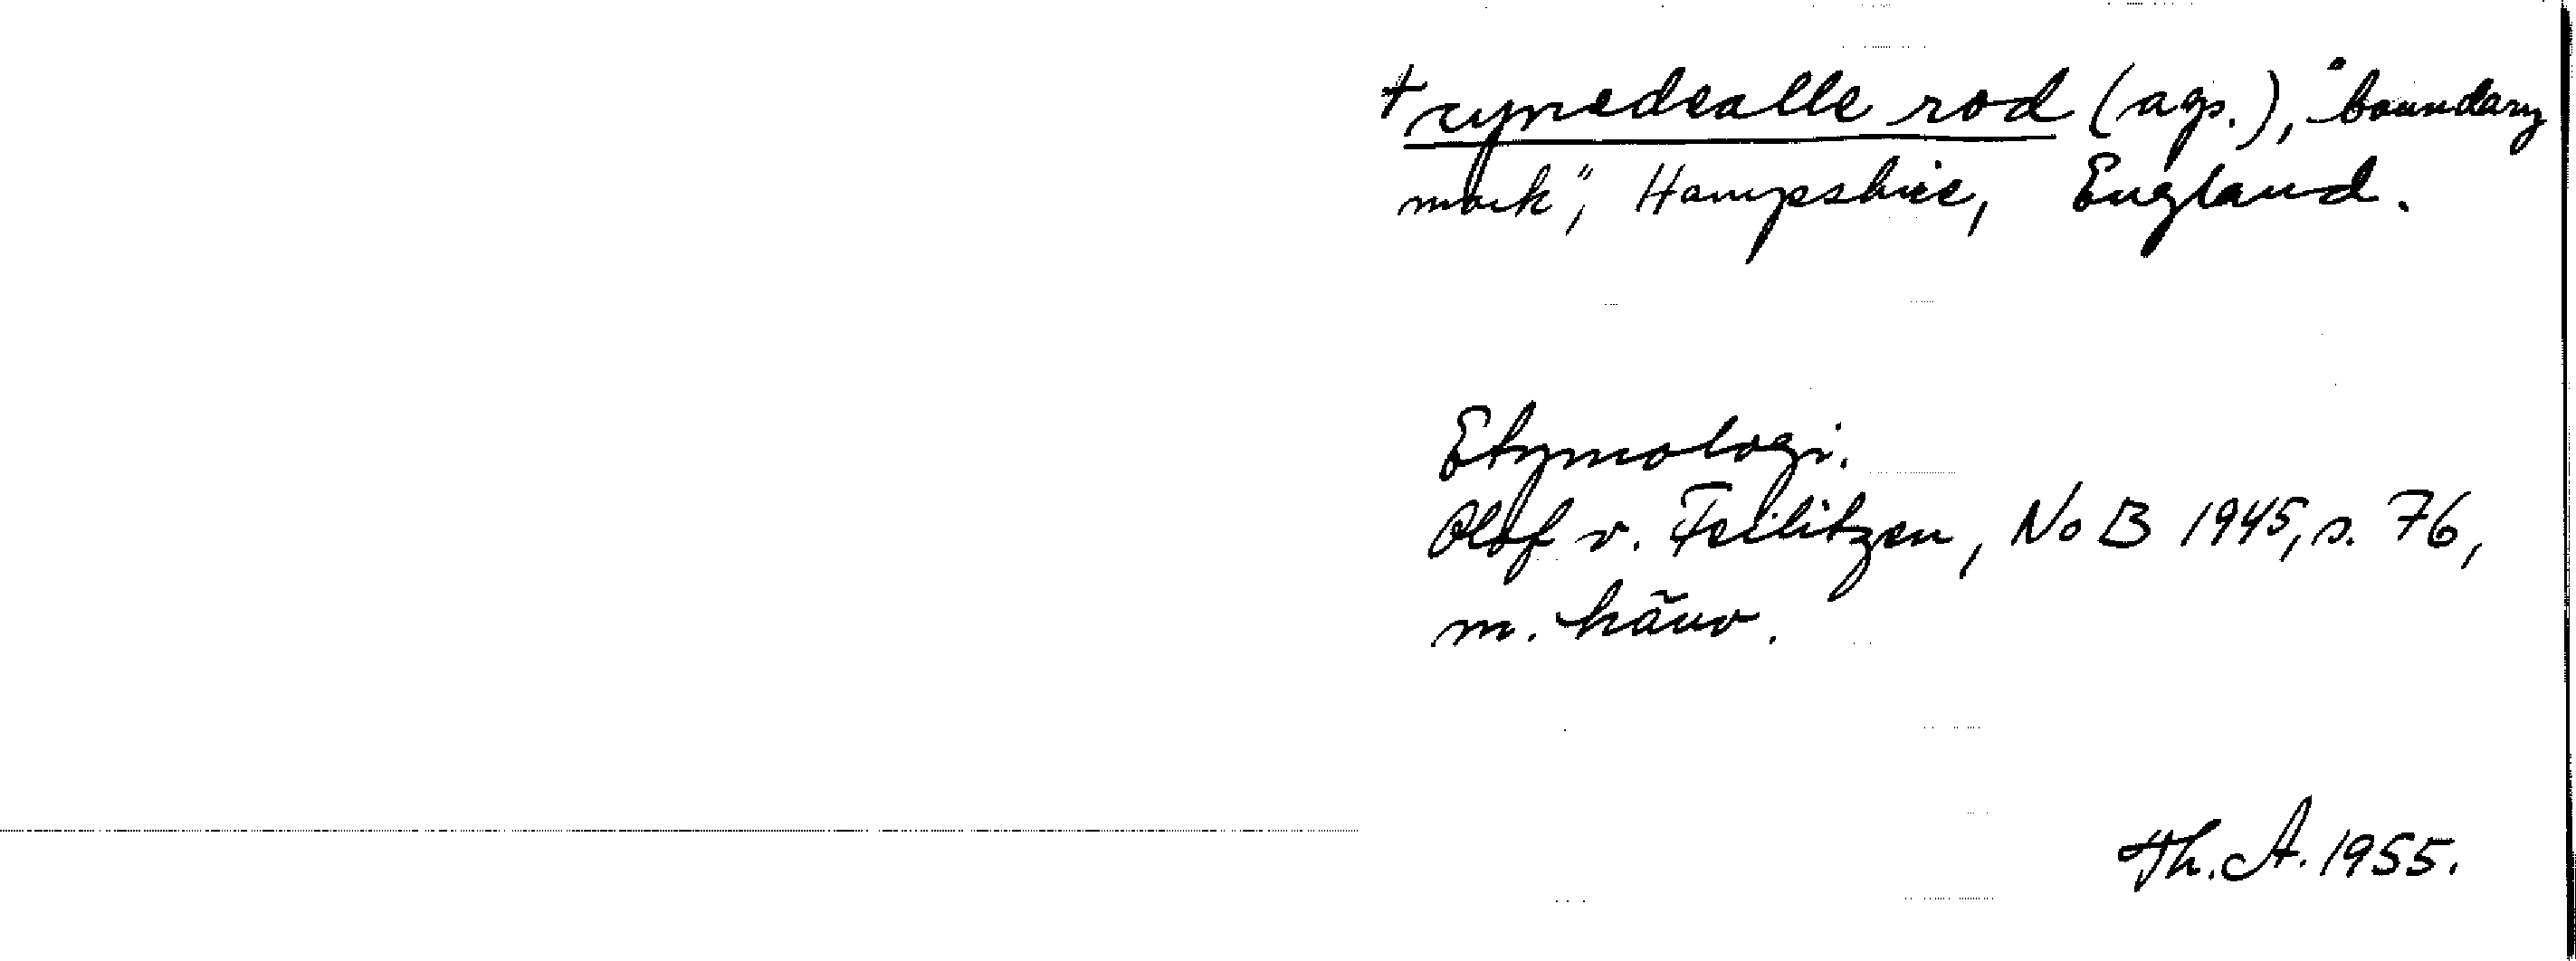 +cynedealle rod (ags.), "boundary
mark", Hampshire, England.
Etymologi.
Olof v. Feilitzen, NoB 1945, s. 76,
m. hänv.
Th. A. 1955.